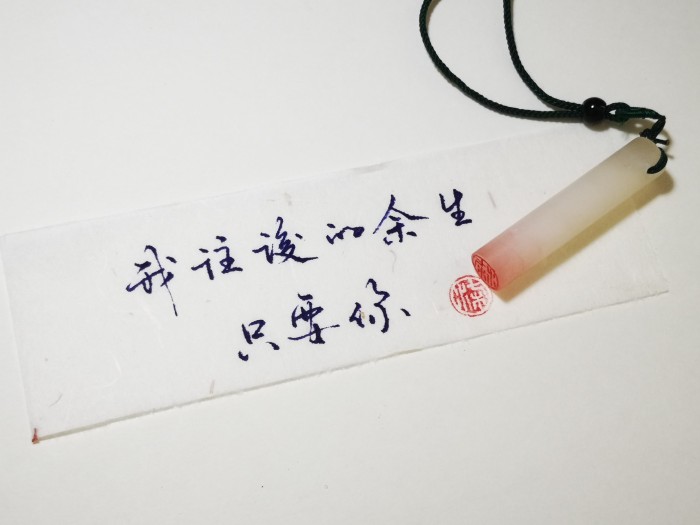 我往後的余生
只要你